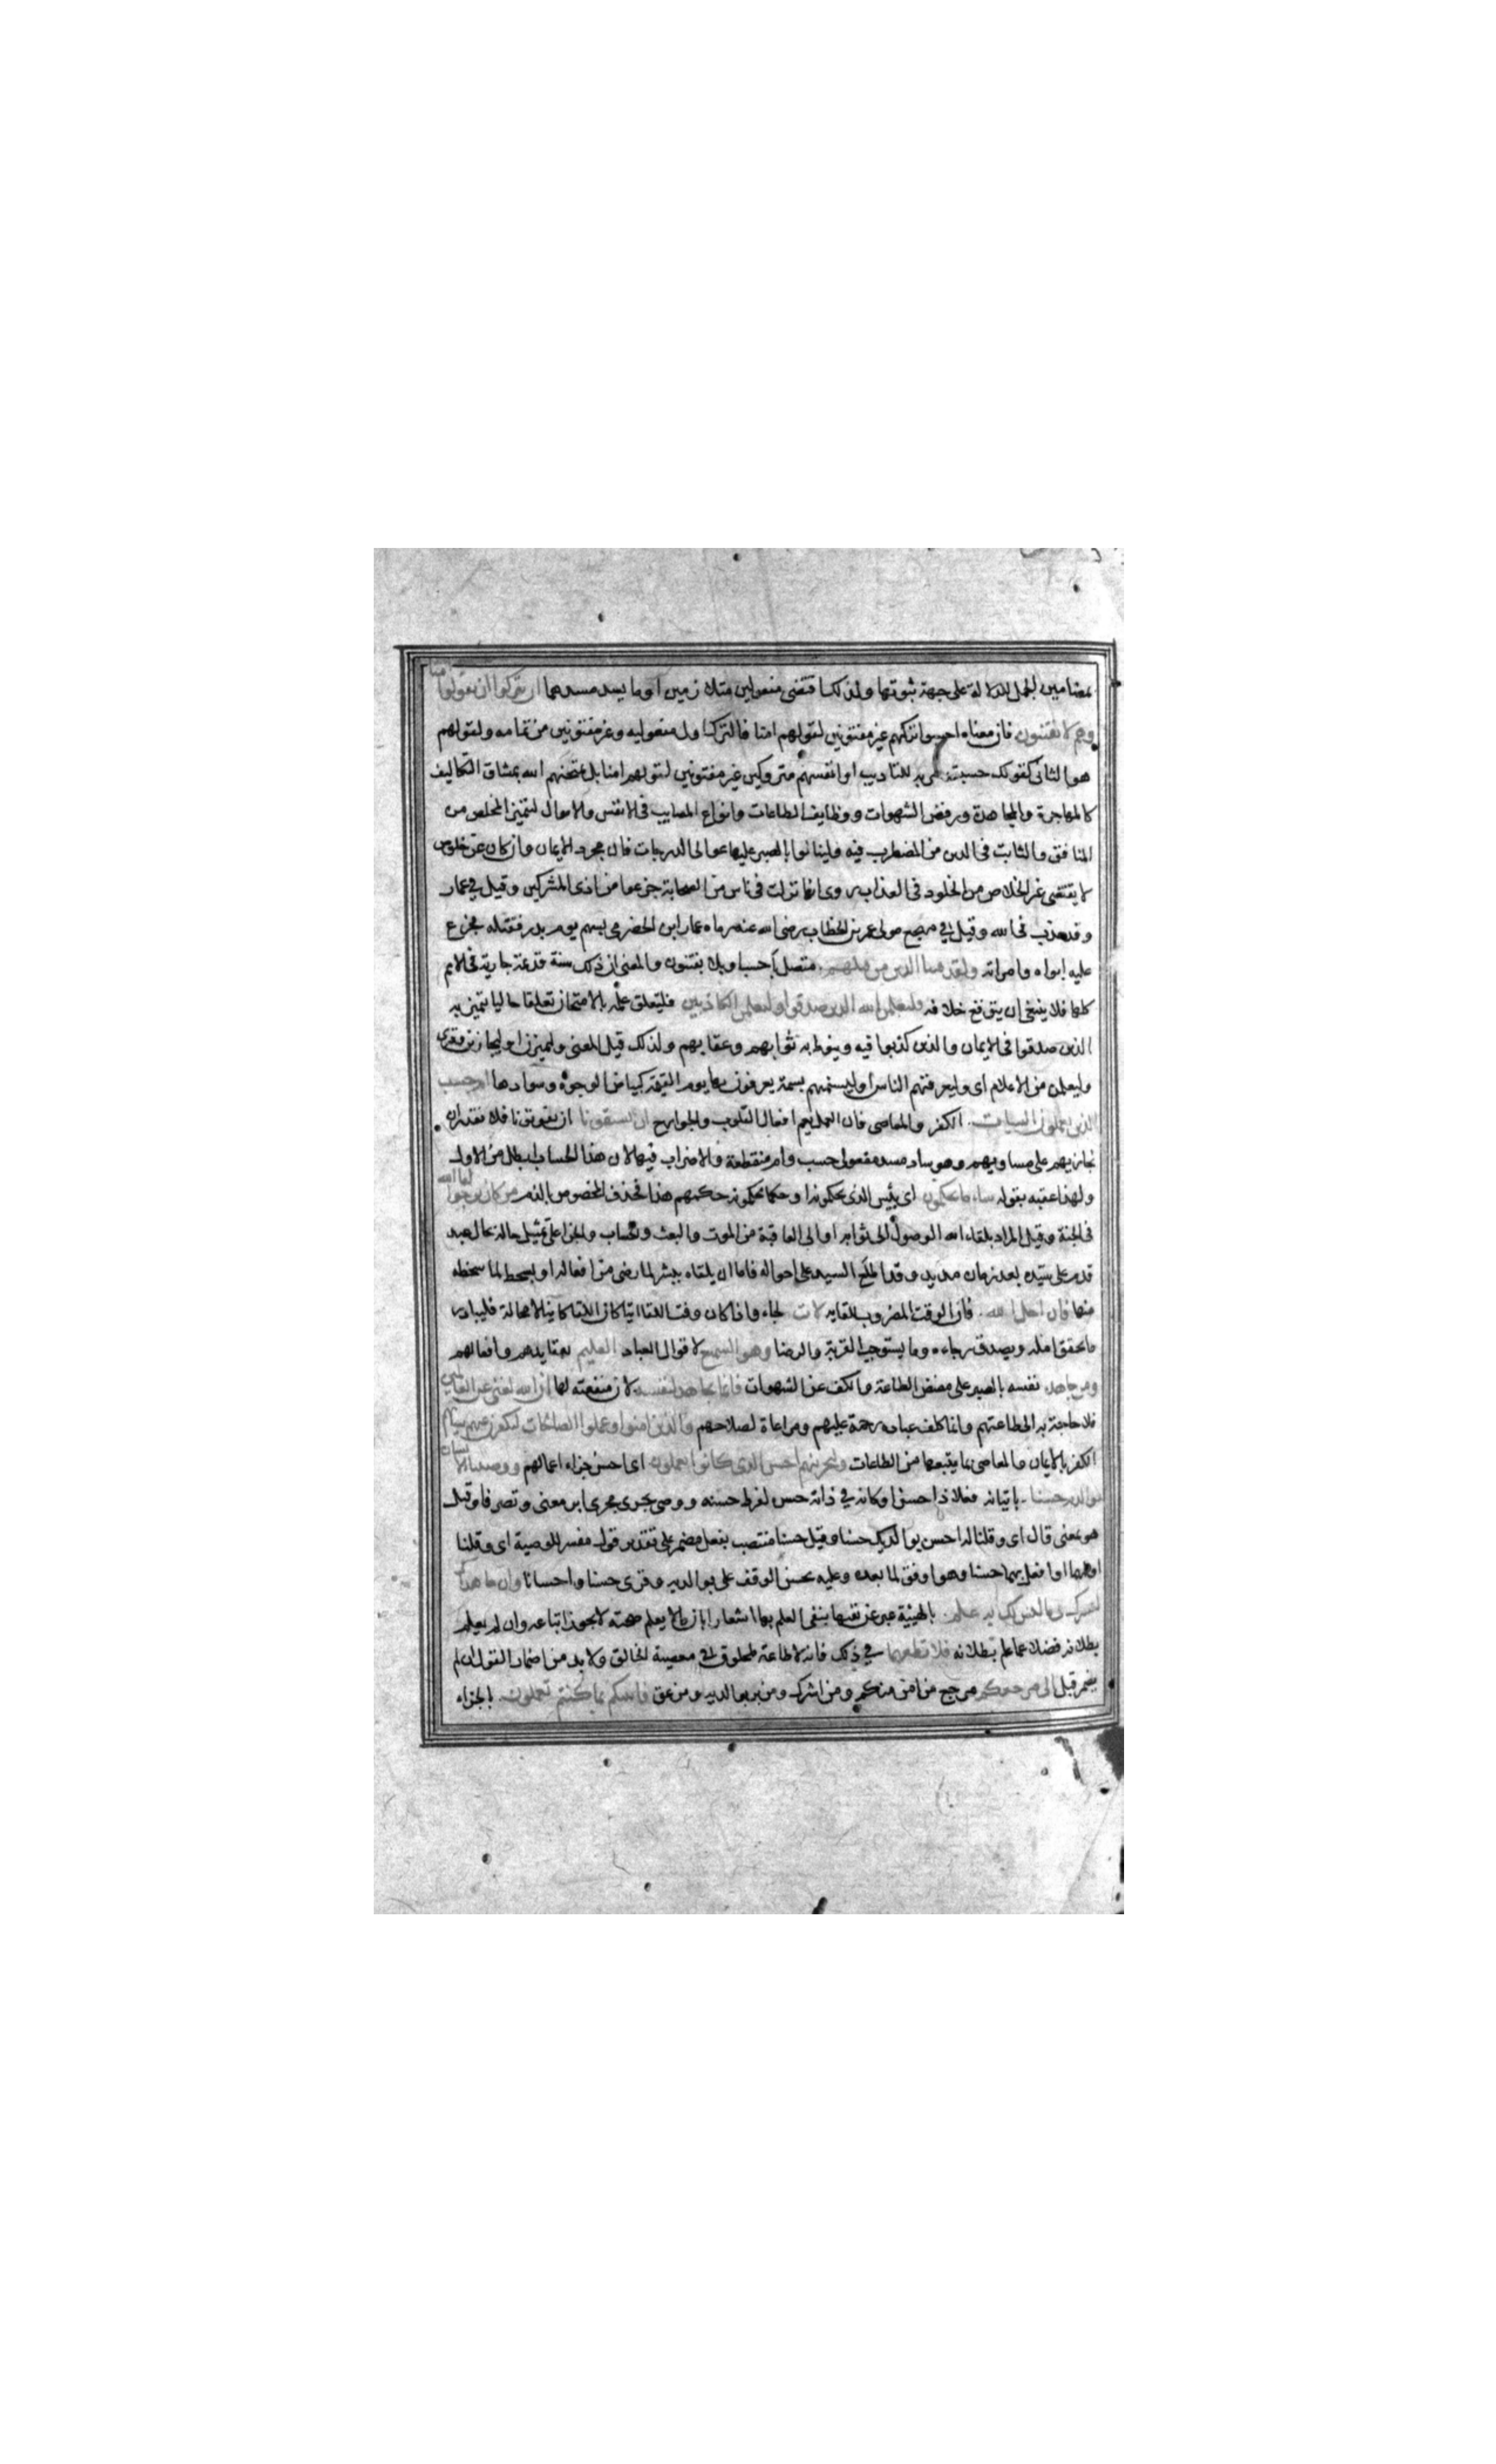 بمضامين الجمل للدلالة على جهة ثبوتها ولذلك اقتضى مفعولين متلازمين او ما يسد مسدهما ان يتركوا ان يقولوا امنا
وهم لا يفتنون فان معناه احسبوا تركهم غير مفتونين لقولهم امنا فالترك اول مفعوليه وغير مفتونين من تمامه ولقولهم
هو الثاني كقولك حسبت ضربه للتاديب او انفسهم متروكين غير مفتونين لقولهم امنا بل يمتحنهم الله بمشاق التكاليف
كالمهاجرة والمجاهدة ورفض الشهوات ووظايف الطاعات وانواع المصايب في الانفس والاموال ليتميز المخلص من
المنافق والثابت في الدين من المضطرب فيه ولينالوا بالصبر عليها عوالي الدرجات فان مجرد الايمان وان كان عن خلوص
لا يقتضي غير الخلاص من الخلود في العذاب روى انها نزلت في ناس من الصحابة جزعوا من اذى المشركين وقيل في عمار
وقد عذب في الله وقيل في مهجع مولى عمر بن الخطاب رضى الله عنه رماه عمار ابن الحضرمي بسهم يوم بدر فقتله فجزع
عليه ابواه وامراته ولقد فتنا الذين من قبلهم متصل باحسب او بلا يفتنون والمعنى ان ذلك سنة قديمة جارية في الامم
كلها فلا ينبغي ان يتوقع خلافه وليعلمن الله الذين صدقوا وليعلمن الكاذبين فليتعلقن علمه بالامتحان تعلقا حاليا يتميز به
الذين صدقوا في الايمان والذين كذبوا فيه وينوط به ثوابهم وعقابهم ولذلك قيل المعنى وليميزن او ليجازين وقرئ
وليعلمن من الاعلام اى وليعرفنهم الناس او ليسمنهم بسمة يعرفون بها يوم القيمة كبياض الوجوه وسوادها ام حسب
الذين يعملون السيات الكفر والمعاصى فان العمل يعم افعال القلوب والجوارح ان يسبقونا ان يفوتونا فلا نقدر ان
نجازيهم على مساويهم وهو ساد مسد مفعولى حسب وام منقطعة والاضراب فيها لان هذا الحسبان ابطل من الاول
ولهذا عقبه بقوله ساء ما يحكمون اى بئس الذي يحكمونه او حكما يحكمونه حكمهم هذا فحذف المخصوص بالذم من كان يرجوا لقاء الله
في الجنة وقيل المراد بلقاء الله الوصول الى ثوابه او الى العاقبة من الموت والبعث والحساب والجزا على تمثيل حاله بحال عبد
قدم على سيده بعد زمان مديد وقد اطلع السيد على احواله فاما ان يلقاه ببشر لما رضى من افعاله او بسخط لما سخطه
منها فان اجل الله فان الوقت المضروب للقايه لات لجاء واذا كان وقت اللقا اتيا كان اللقا كاينا لا محالة فليبادر
ما يحقق امله ويصدق رجاءه وما يستوجب القربة والرضا وهو السميع لاقوال العباد العليم بعقايدهم وافعالهم
ومن جاهد نفسه بالصبر على مضض الطاعة والكف عن الشهوات فانما يجاهد لنفسه لان منفعته لها ان الله لغنى عن العالمين
فلا حاجة به الى طاعتهم وانما كلف عباده رحمة عليهم ومراعاة لصلاحهم والذين امنوا وعملوا الصالحات لنكفرن عنهم سياتهم
الكفر بالايمان والمعاصى بما يتبعها من الطاعات ولنجزينهم احسن الذى كانوا يعملون اى احسن جزاء اعمالهم ووصينا الانسان
بوالديه حسنا بايتانه فعلا ذا حسن او كانه في ذاته حسن لفرط حسنه ووصى يجرى مجرى امر معنى وتصرفا وقيل
هو بمعنى قال اى وقلنا له احسن بوالديك حسنا وقيل حسنا منتصب بفعل مضمر على تقدير قول مفسر للوصية اى وقلنا
اولهما او افعل بهما حسنا وهو اوفق لما بعده وعليه يحسن الوقف على بوالديه وقرئ حسنا واحسانا وان جاهداك
لتشرك بى ما ليس لك به علم بالهيئة عبر عن نفيها بنفى العلم بها اشعارا بان ما لا يعلم صحته لا يجوز اتباعه وان لم يعلم
بطلانه فضلا عما علم بطلانه فلا تطعهما في ذلك فانه لا طاعة لمخلوق في معصية الخالق ولا بد من اضمار القول ان لم
يضمر قبل الى مرجعكم مرجع من امن منكم ومن اشرك ومن بر بوالديه ومن عق فانبئكم بما كنتم تعملون بالجزاء